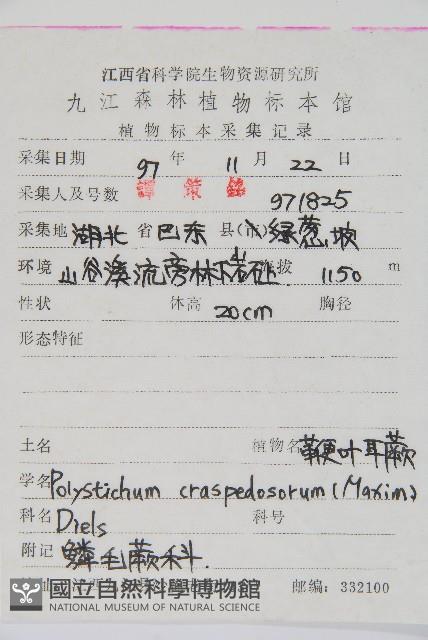 江西省科学院生物资源研究所
九江森林植物标本馆
植物标本采集记录
采集日期 97 年 11 月 22 日
采集人及号数 譚策銘 971825
采集地 湖北 省 巴东 县(市) 绿葱坡
环境 山谷溪流旁林下岩上 海拔 1150 m
性状 体高 20cm 胸径
形态特征
土名 植物名 鞭叶耳蕨
学名 Polystichum craspedosorum (Maxim)
科名 Diels 科号
附记 鳞毛蕨科.
邮编: 332100
國立自然科學博物館
NATIONAL MUSEUM OF NATURAL SCIENCE